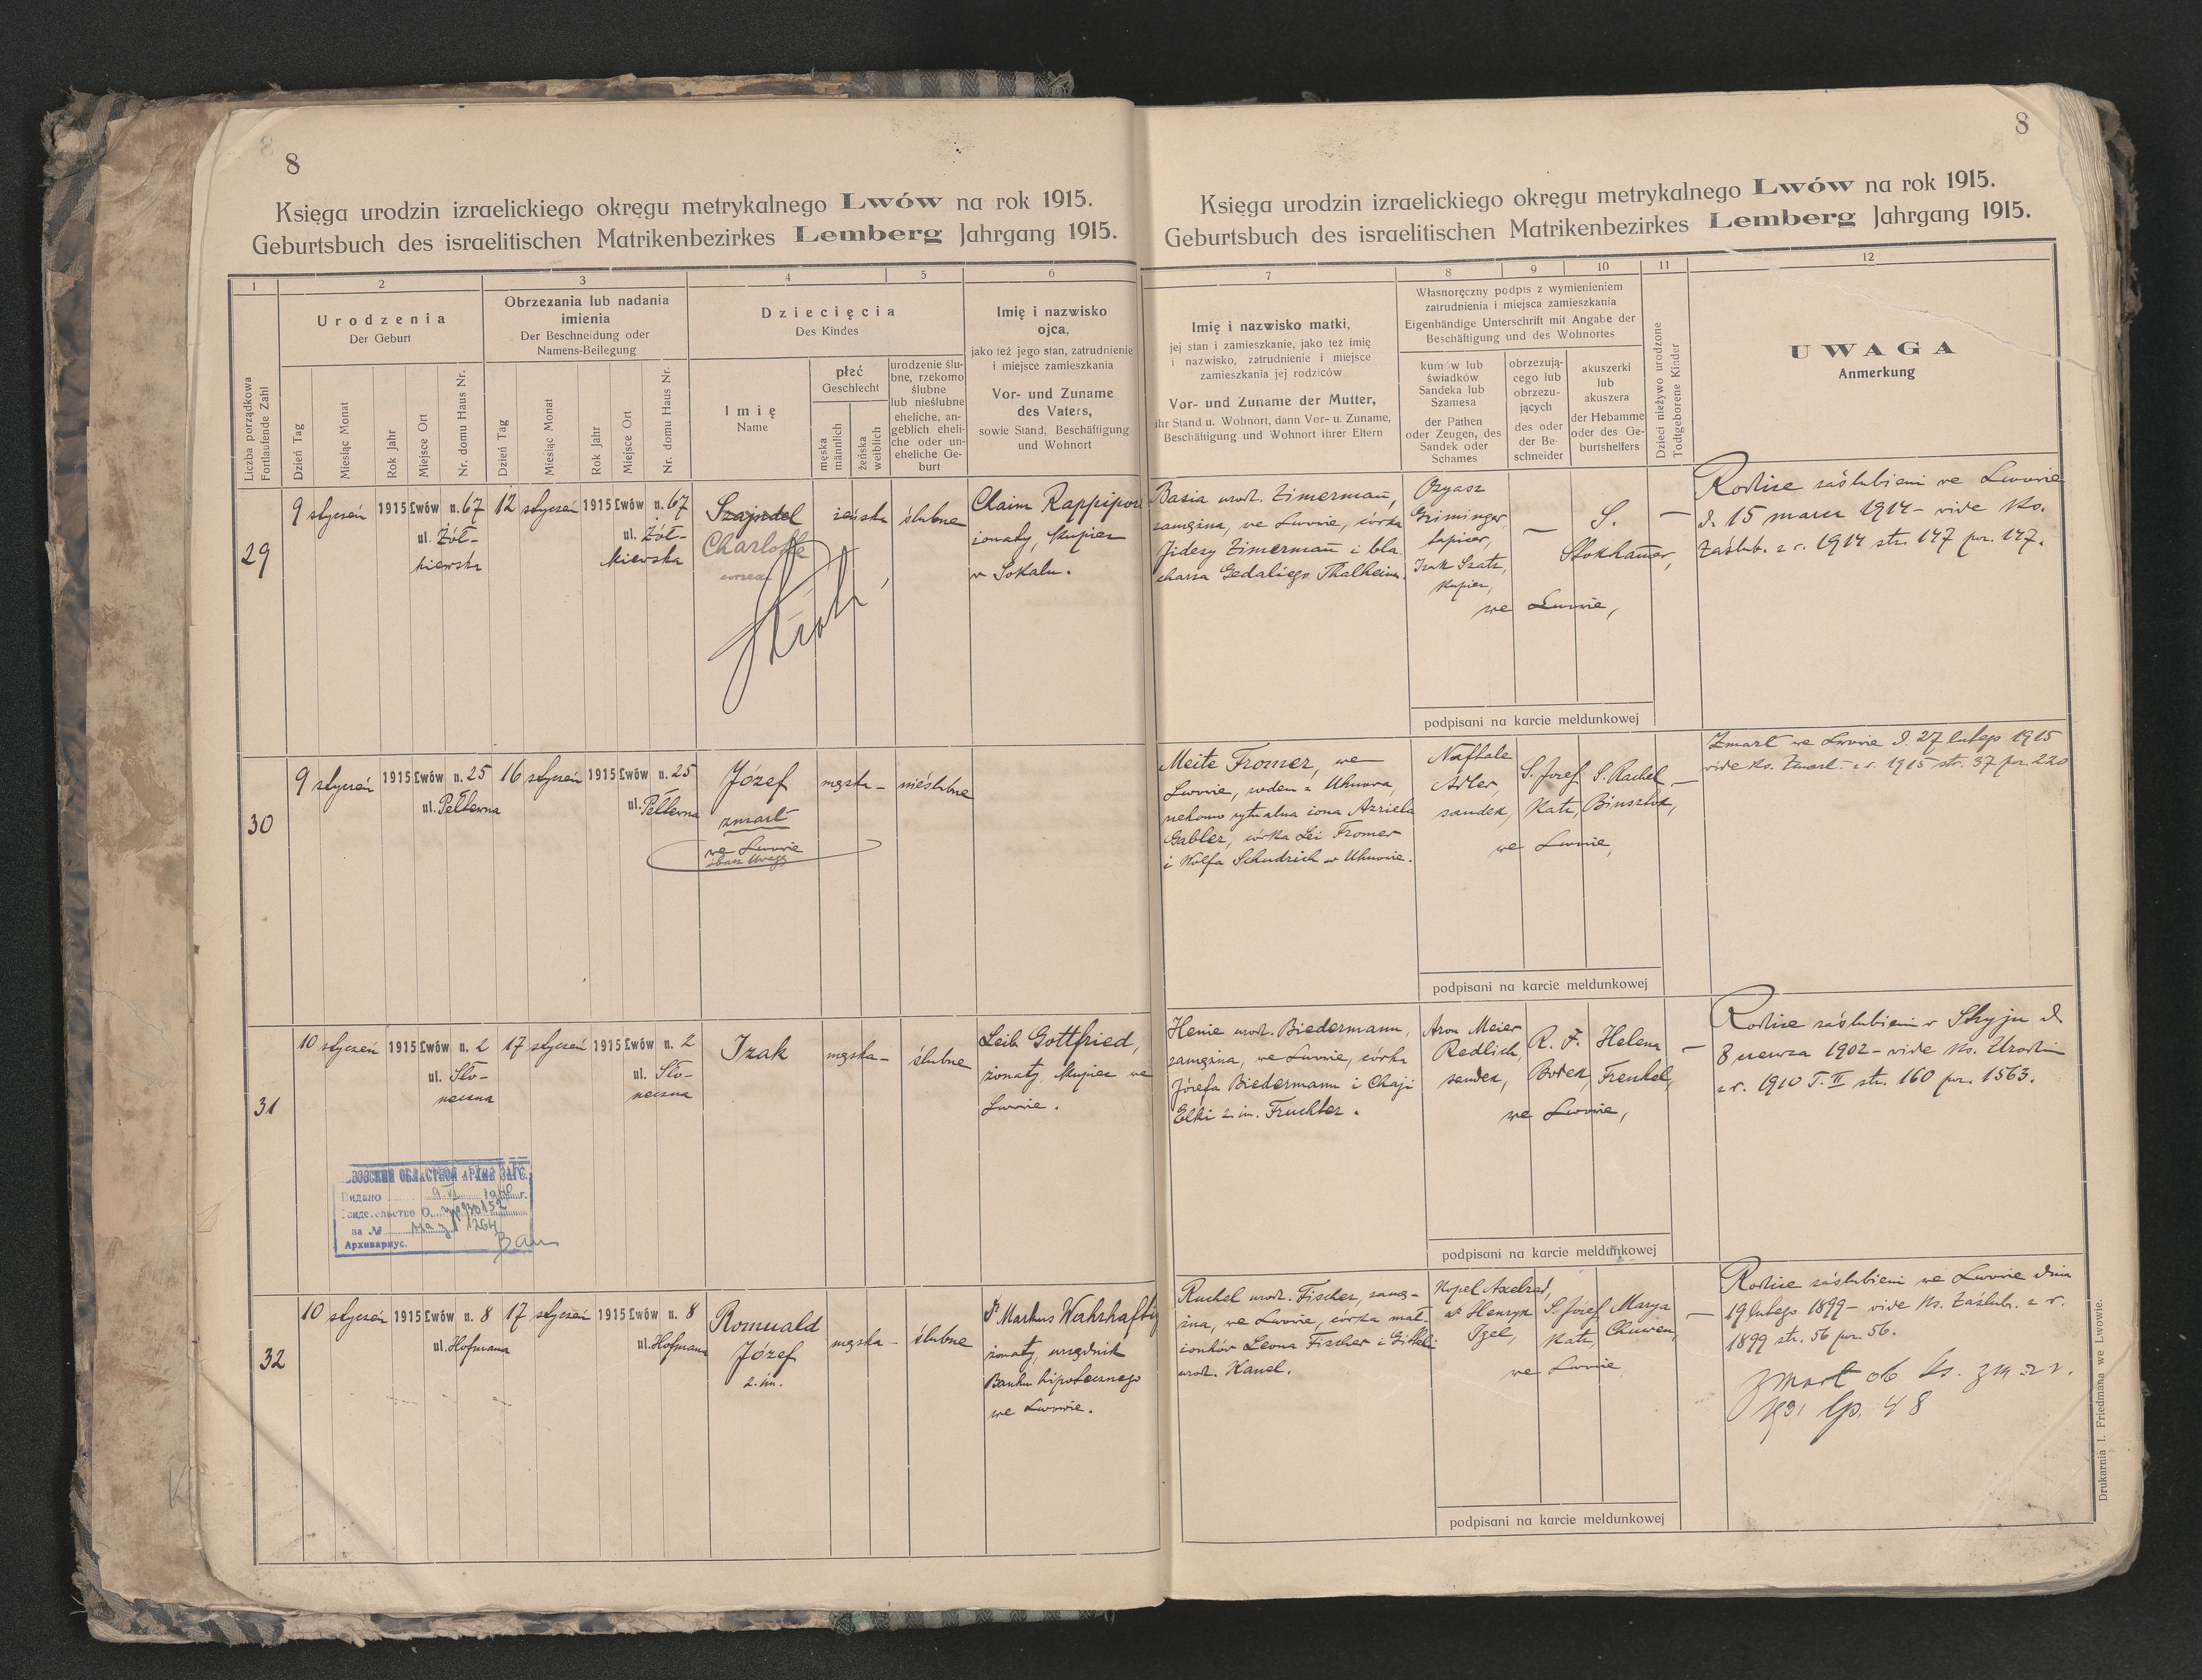 8
Księga urodzin izraelickiego okręgu metrykalnego Lwów na rok 1915.
Geburtsbuch des israelitischen Matrikenbezirkes Lemberg Jahrgang 1915.
1
2
3
4
5
6
Liczba porządkowa
Fortlaufende Zahl
Urodzenia
Der Geburt
Dzień Tag
Miesiąc Monat
Rok Jahr
Miejsce Ort
Nr. domu Haus Nr.
Obrzezania lub nadania
imienia
Der Beschneidung oder
Namens-Beilegung
Dzień Tag
Miesiąc Monat
Rok Jahr
Miejsce Ort
Nr. domu Haus Nr.
Dziecięcia
Des Kindes
Imię
Name
płeć
Geschlecht
męska
männlich
żeńska
weiblich
urodzenie ślu-
bne, rzekomo
ślubne
lub nieślubne
eheliche, an-
geblich eheli-
che oder un-
eheliche Ge-
burt
Imię i nazwisko
ojca,
jako też jego stan, zatrudnienie
i miejsce zamieszkania
Vor- und Zuname
des Vaters,
sowie Stand, Beschäftigung
und Wohnort
29
9 styczeń 1915 Lwów n. 67 12 styczeń 1915 Lwów n. 67
ul. Żół-
kiewska
ul. Żół-
kiewska
Szajndel
Charlotte
żeńska
ślubne
Chaim Rappiport
żonaty, kupiec
w Sokalu.
30
9 styczeń 1915 Lwów n. 25 16 styczeń 1915 Lwów n. 25
ul. Pełtewna
ul. Pełtewna
Józef
zmarł
we Lwowie
obacz Uwagę
męska –
nieślubne
31
10 styczeń 1915 Lwów n. 2 17 styczeń 1915 Lwów n. 2
ul. Sło-
neczna
ul. Sło-
neczna
Izak
męska –
ślubne
Leib Gottfried,
żonaty, kupiec we
Lwowie.
Видано
за №
Архивариус.
32
10 styczeń 1915 Lwów n. 8 17 styczeń 1915 Lwów n. 8
ul. Hofmana
ul. Hofmana
Romuald
Józef
2. im.
męska –
ślubne
Dr Markus Wahrhaftig
żonaty, urzędnik
Banku hipotecznego
we Lwowie.
8
Księga urodzin izraelickiego okręgu metrykalnego Lwów na rok 1915.
Geburtsbuch des israelitischen Matrikenbezirkes Lemberg Jahrgang 1915.
7
8
9
10
11
12
Imię i nazwisko matki,
jej stan i zamieszkanie, jako też imię
i nazwisko, zatrudnienie i miejsce
zamieszkania jej rodziców
Vor- und Zuname der Mutter,
ihr Stand u. Wohnort, dann Vor- u. Zuname,
Beschäftigung und Wohnort ihrer Eltern
Własnoręczny podpis z wymienieniem
zatrudnienia i miejsca zamieszkania
Eigenhändige Unterschrift mit Angabe der
Beschäftigung und des Wohnortes
kumów lub
świadków
Sandeka lub
Szamesa
der Pathen
oder Zeugen, des
Sandek oder
Schames
obrzezują-
cego lub
obrzezu-
jących
des oder
der Be-
schneider
akuszerki
lub
akuszera
der Hebamme
oder des Ge-
burtshelfers
Dzieci nieżywo urodzone
Todtgeborene Kinder
UWAGA
Anmerkung
Basia urodz. Zimermann,
zamężna, we Lwowie, córka
Jidesy Zimermann i bla
charza Gedaliego Thalheim.
Ozyasz
Griminger,
tapicer,
Izak Szatz,
kupiec,
–
S.
Stokhamer,
we Lwowie,
–
Rodzice zaślubieni we Lwowie
d. 15 marca 1914 – vide Ks.
Zaślub. z r. 1914 str. 147 poz. 147.
podpisani na karcie meldunkowej
Meite Fromer, we
Lwowie, rodem z Uhnowa,
rzekomo rytualna żona Azriela
Gabler, córka Lei Fromer
i Wolfa Schudrich w Uhnowie.
Naftale
Adler,
sandek,
S. Josef
Katz,
S. Rachel
we Lwowie,
–
Zmarł we Lwowie d. 27 lutego 1915
vide Ks. Zmarł. z r. 1915 str. 37 poz. 220
podpisani na karcie meldunkowej
Henie urodz. Biedermann,
zamężna, we Lwowie, córka
Józefa Biedermann i Chaji
Elki 2. im. Fruchter.
Aron Meier
Redlich,
sandek,
R. F.
Bodek,
Helena
Frenkel,
we Lwowie,
–
Rodzice zaślubieni w Stryju d.
8 czerwca 1902 – vide Ks. Urodzin
z r. 1910 T. II str. 160 poz. 1563.
podpisani na karcie meldunkowej
Ruchel urodz. Fischer, zamę-
żna, we Lwowie, córka mał-
żonków Leona Fischer i Gitteli
urodz. Kanel.
Kopel Axelrad,
dr Henryk
Igel,
S. Józef
Katz,
Marya
Chuwen,
we Lwowie
–
Rodzice zaślubieni we Lwowie dnia
19 lutego 1899 – vide Ks. Zaślub. z r.
1899 str. 56 poz. 56.
Zmarł ob ks. zm. z r.
1931 lp. 48
podpisani na karcie meldunkowej
Drukarnia I. Friedmana we Lwowie.